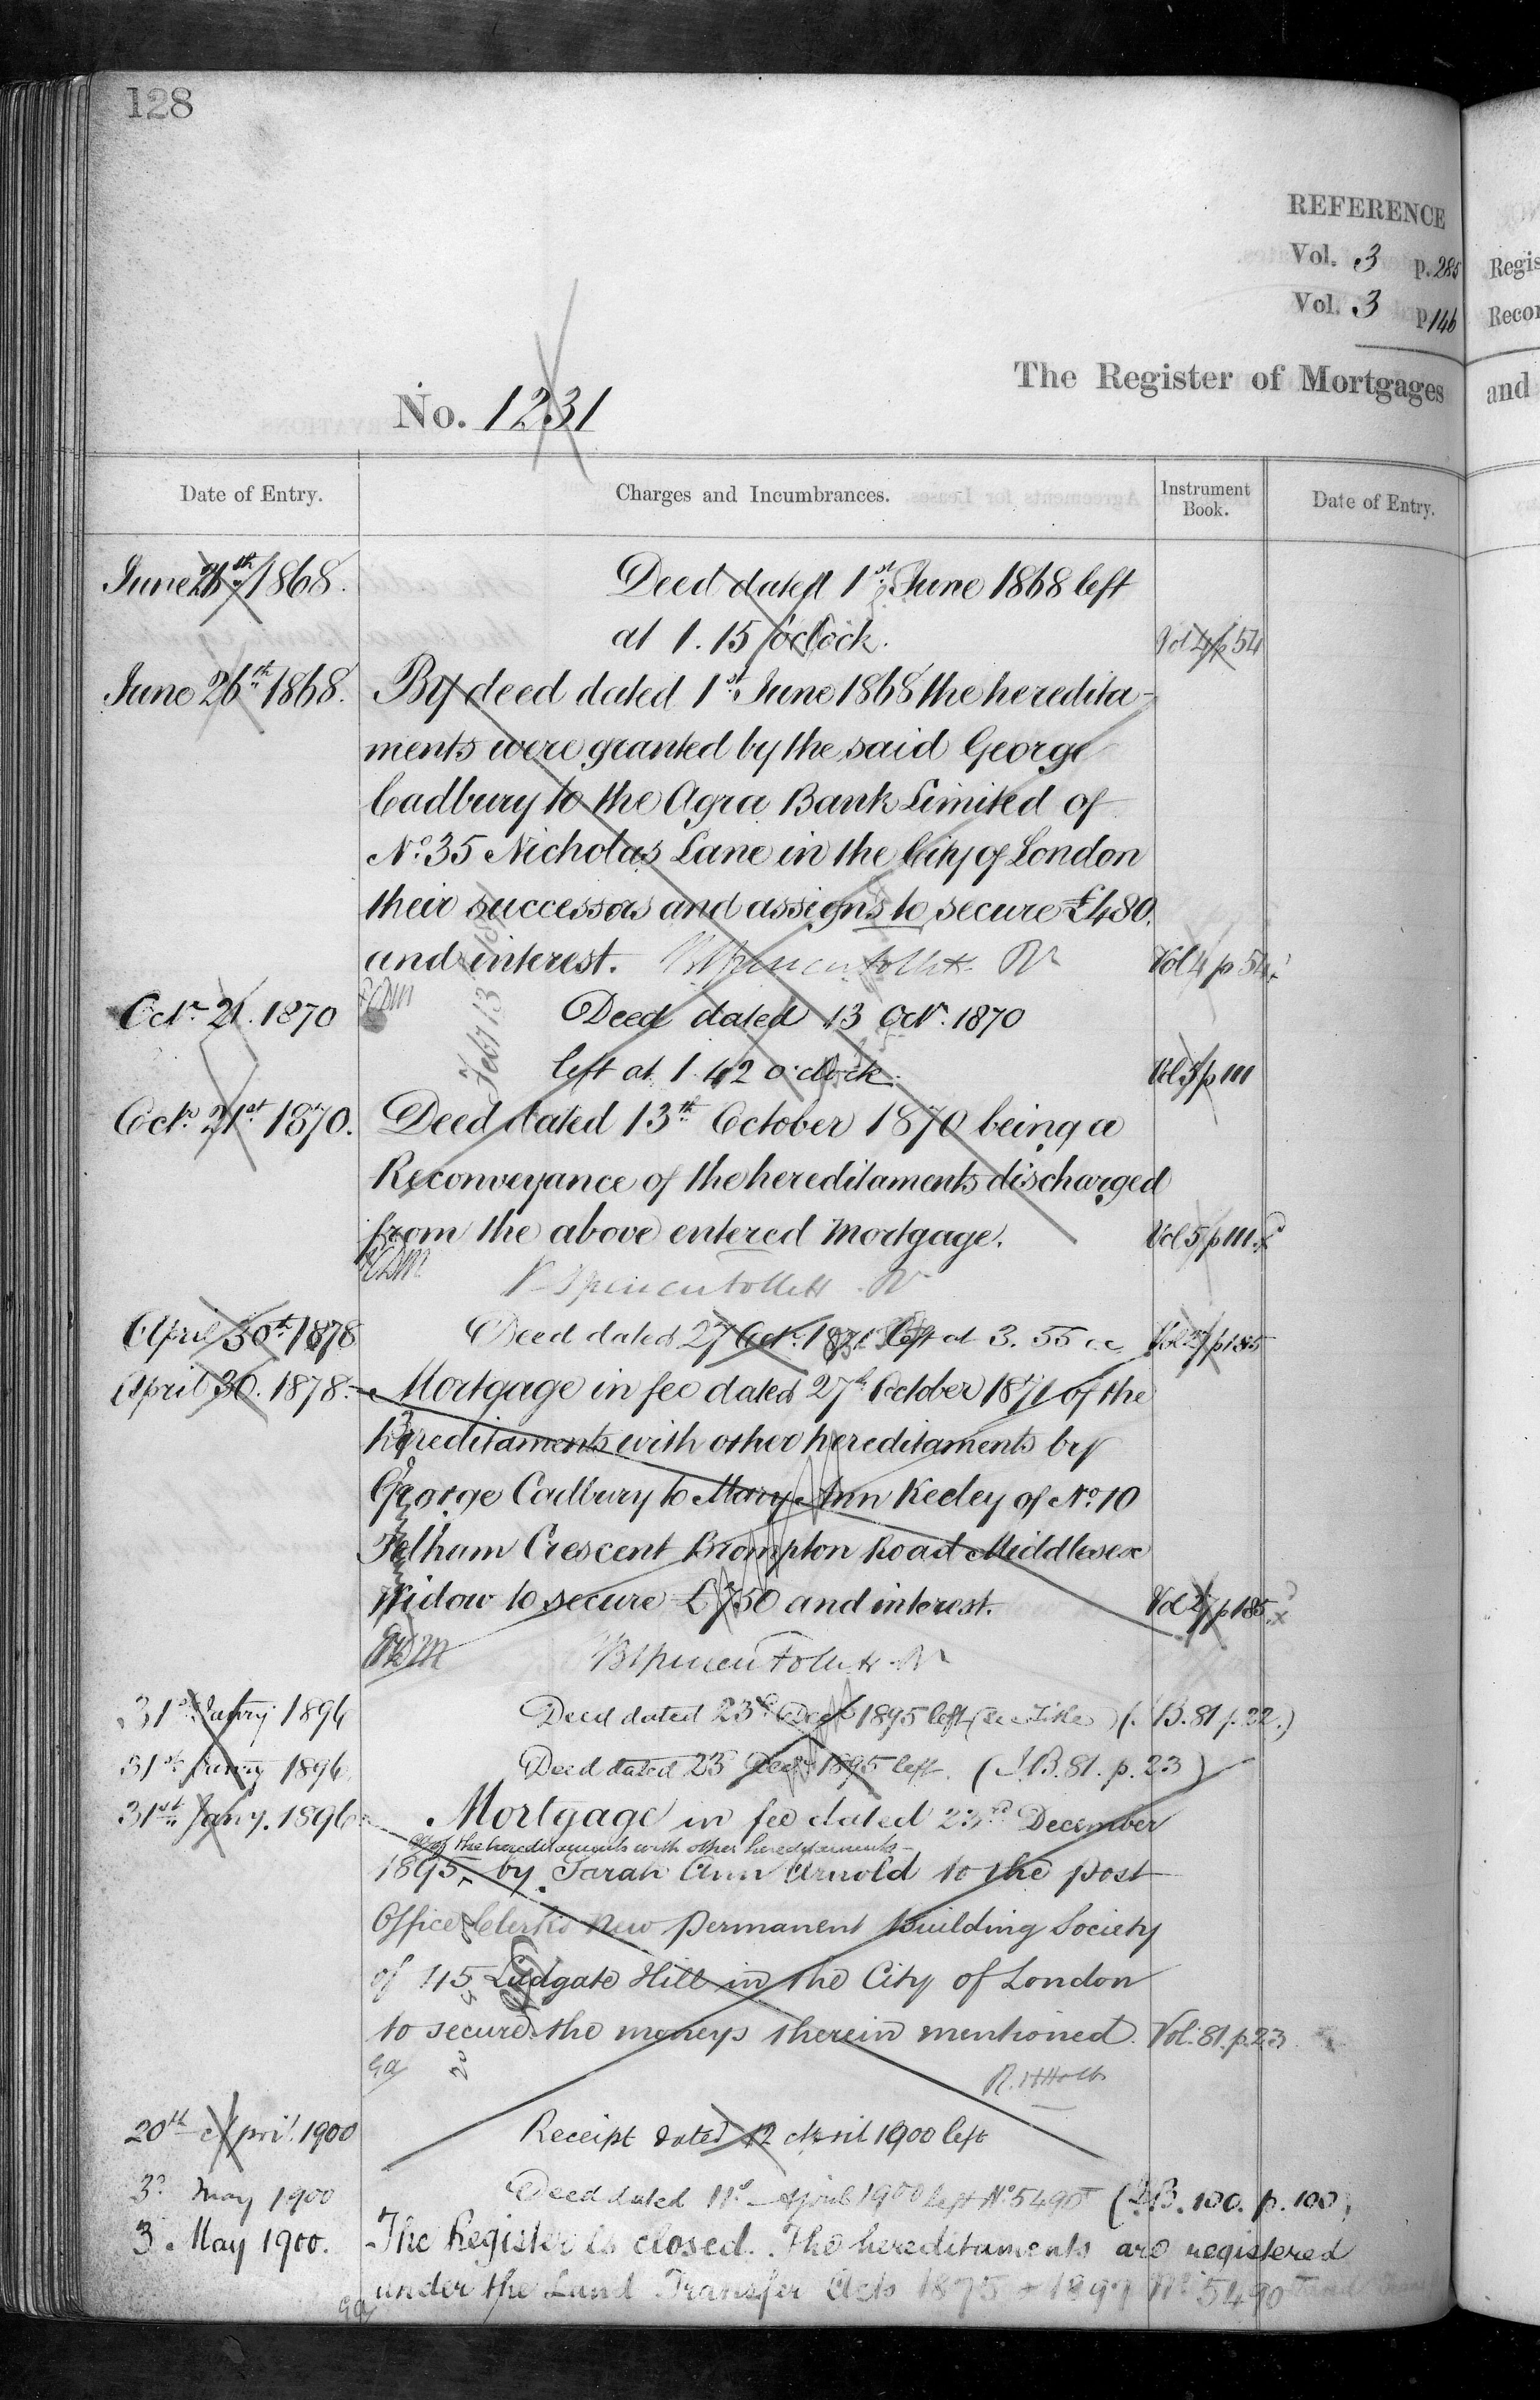 128
REFERENCE
Vol. 3 p. 285
Vol. 3 p. 146
The Register of Mortgages
No. 1231
Date of Entry. Charges and Incumbrances. Instrument Book. Date of Entry.
June 26th 1868. Deed dated 1st June 1868 left
at 1.15 o'clock. Vol 4 p 54
June 26th 1868. By deed dated 1st June 1868 the heredita-
ments were granted by the said George
Cadbury to the Agra Bank Limited of
No. 35 Nicholas Lane in the City of London
their successors and assigns to secure £480.
and interest. Vol 4 p 54
Octr. 21. 1870 Deed dated 13 Octr. 1870
left at 1.42 o'clock. Vol 5 p 111
Octr. 21st 1870. Deed dated 13th October 1870 being a
Reconveyance of the hereditaments discharged
from the above entered Mortgage. Vol 5 p 111
April 30th 1878 Deed dated 27 Octr. 1871 left at 3.55 Vol 27 p 185
April 30. 1878. Mortgage in fee dated 27th October 1871 of the
hereditaments with other hereditaments by
George Cadbury to Mary Ann Keeley of No. 10
Pelham Crescent Brompton Road Middlesex
Widow to secure £750 and interest. Vol 27 p 185
31st Janry 1896 Deed dated 23d Decr 1895 left (see Title) (I.B. 81 p. 22.)
31st Janry 1896 Deed dated 23d Decr 1895 left. (I.B. 81. p. 23)
31st Jany. 1896 Mortgage in fee dated 23rd December
of the hereditaments with other hereditaments
1895, by Sarah Ann Arnold to the Post
Office Clerks New Permanent Building Society
of 45 Ludgate Hill in the City of London
to secure the moneys therein mentioned. Vol. 81. p. 23
R. H Holt
20th April 1900 Receipt dated 12 April 1900 left
3d May 1900 Deed dated 11th April 1900 left No. 5490 (I.B. 100. p. 100)
3 May 1900. The Register is closed. The hereditaments are registered
under the Land Transfer Acts 1875 & 1897 No. 5490